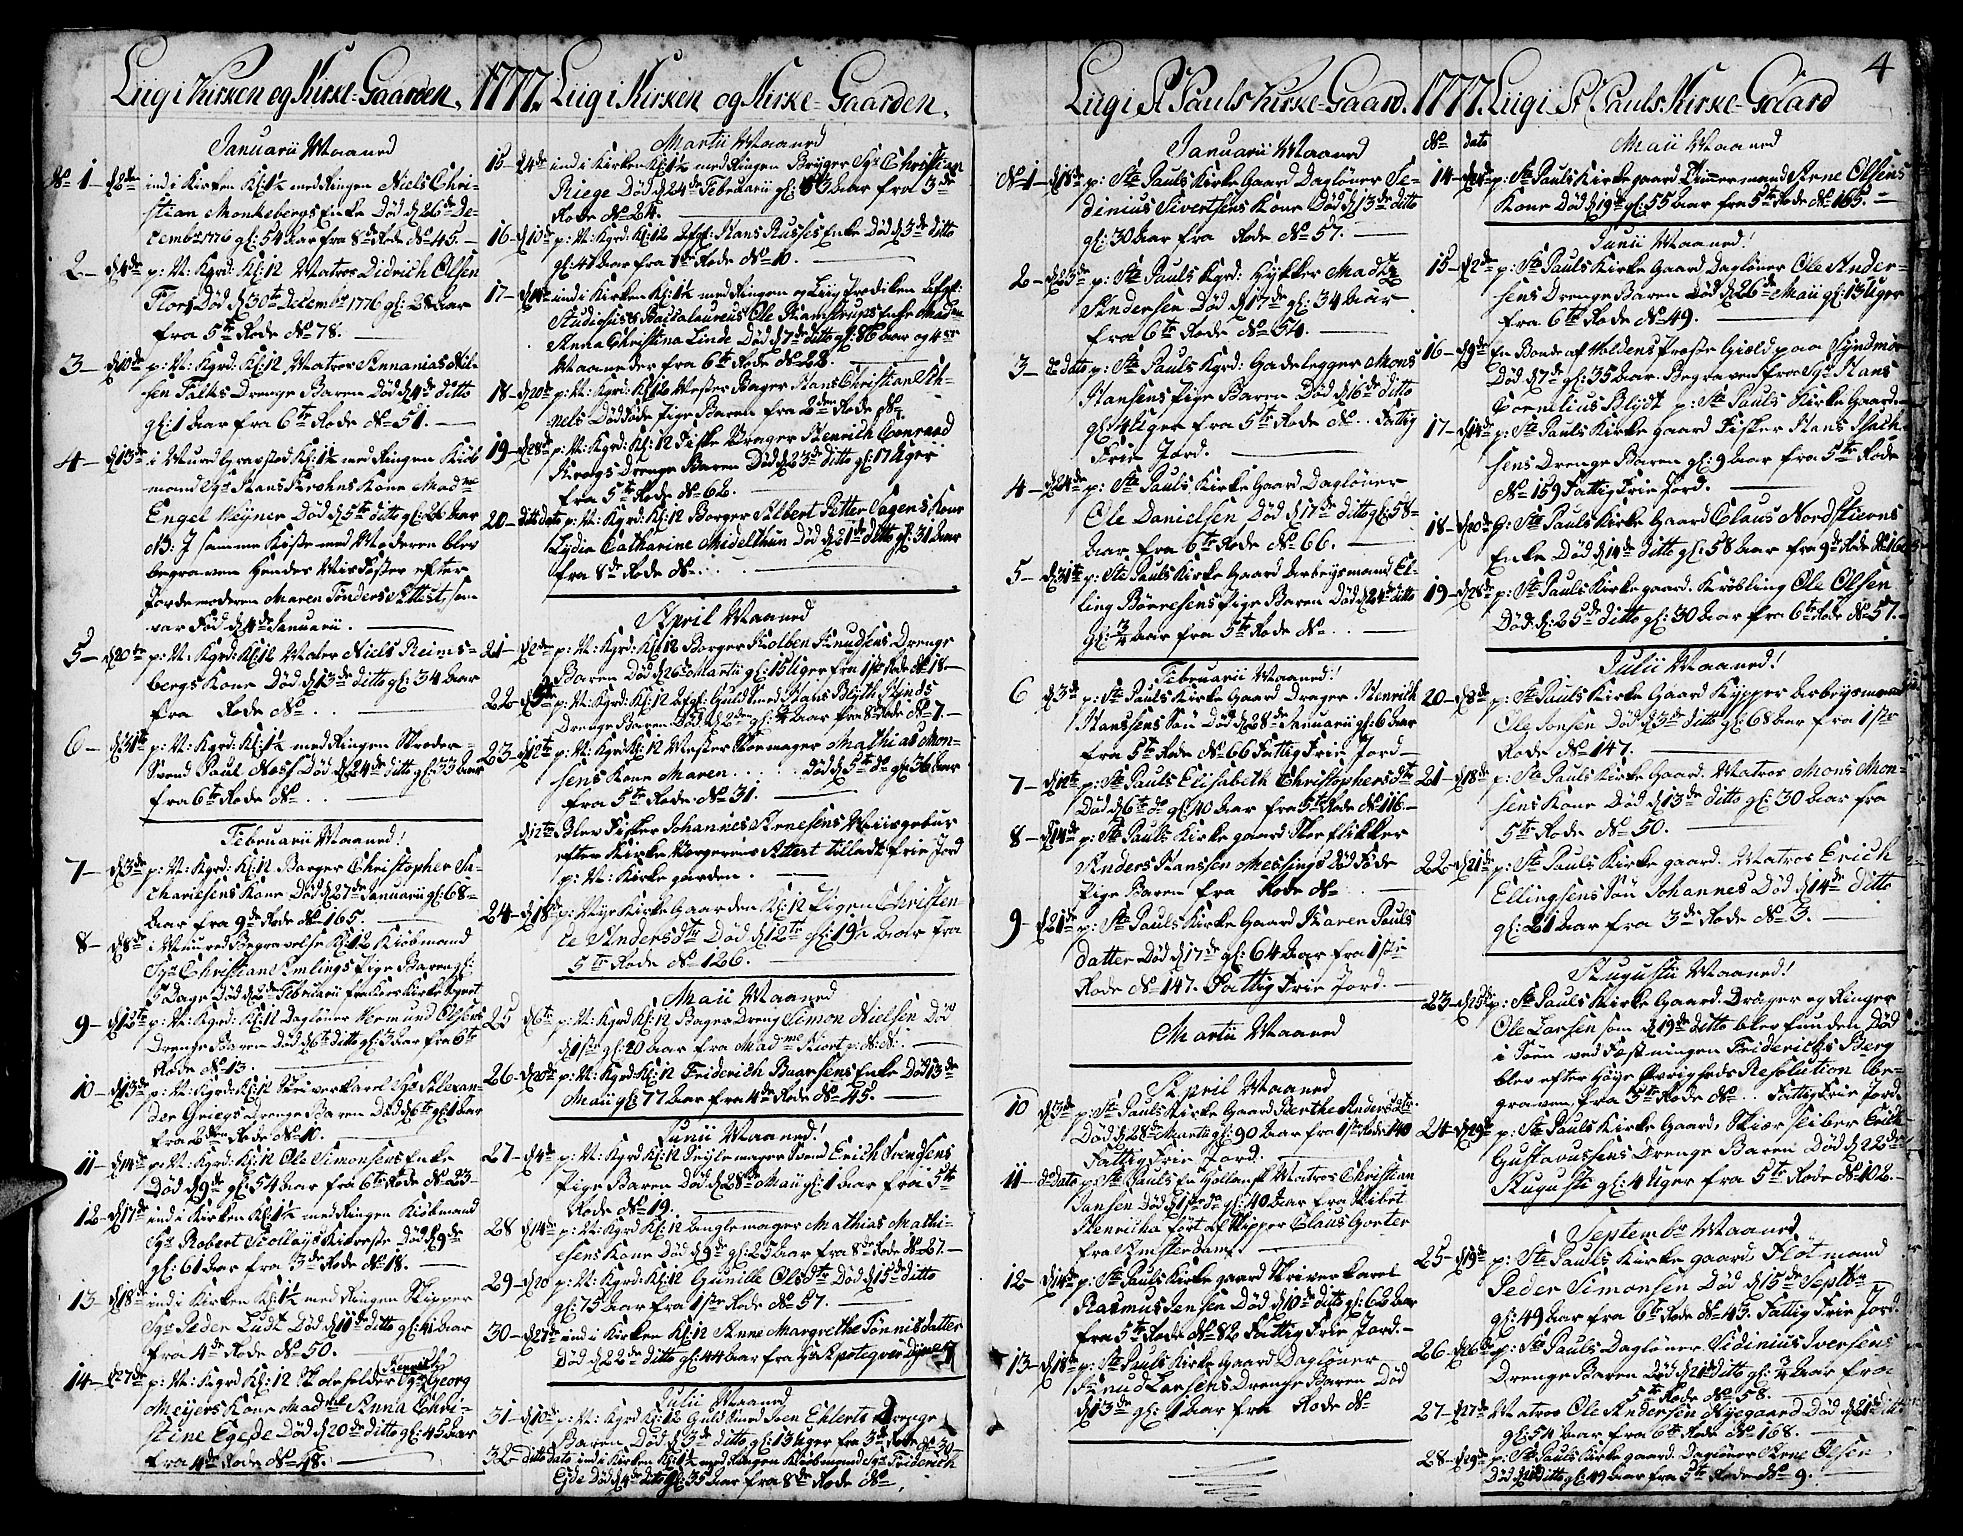 Liig i Kirken og Kirke-Gaarden. 1777.
Januarii Maaned
No 1 - d 2de ind i Kirken Kl: 1½ med Ringen Niels Chri-
stian Monkebergs Enke Død d 26de De-
cembr 1776 gl: 54 Aar fra 8de Rode No 45.
2 - d 4de p: N: Kgrd: Kl: 12 Matros Didrich Olsen
Flors Død d 30te Decembr 1776 gl: 28 Aar
fra 5te Rode No 78.
3 - d 10de p: N: Kgrd: Kl: 12 Matros Annanias Niel-
sen Falks Drenge Baren Død d 4de ditto
gl: 1 Aar fra 6te Rode No 51.
4 - d 13de i Muured Gravsted Kl: 1½ med Ringen Kiøb-
mand Sgr Hans Krohns Kone Madme
Engel Meyner Død d 5te ditto gl: 26 Aar
NB: I samme Kiste med Moderen blev
begraven Hendes Misfoster efter
Jordemoderen Maren Tønders Attest, som
var Fød d 4de Januarii.
5 - d 20te p: N: Kgrd: Kl: 12 Maler Niels Reims-
bergs Kone Død d 13de ditto gl: 34 Aar
fra Rode No ..
6 - d 31te p: N: Kgrd: Kl: 1½ med Ringen Skreder-
Svend Paul Næss Død d 24de ditto gl: 33 Aar
fra 6te Rode No ..
Februarii Maaned!
7 - d 3de p: N: Kgrd: Kl: 12 Borger Christopher Za-
chariesens Kone Død d 27de Januarii gl: 68
Aar fra 9de Rode No 165.
8 - d 8de i Muured Begravelse Kl: 12 Kiøbmand
Sgr Christian Emlings Pige Baren gl:
5 Dage Død d 2de Februarii fra Kors Kirke Sognet
9 - d 12te p: N: Kgrd: Kl: 12 Dagløner Hermund Olsens
Drenge Baren Død d 6te ditto gl: 3 Aar fra 6te
Rode No 13.
10 - d 13de p: N: Kgrd: Kl: 12 Skriverkarl Sgr Alexan-
der Griegs Drenge Baren Død d 6te gl: 1 Aar
fra 2den Rode No 10.
11 - d 14de p: N: Kgrd: Kl: 12 Ole Simonsens Enke
Død d 9de gl: 54 Aar fra 6te Rode No 23
12 - d 17de ind i Kirken Kl: 1½ med Ringen Kiøbmand
Sgr Robert Kiæreste Død d 9de
gl: 61 Aar fra 3de Rode No 18.
13 - d 18de ind i Kirken Kl: 1½ med Ringen Skipper
Sgr Peder Ludt Død d 11te ditto gl: 41 Aar
fra 4de Rode No 50.
14 - d 27de p: N: Kgrd: Kl: 12 Skoleholder Sgr Georg
Meyers Kone Madme Anna Chri-
stine Egede Død d 20de ditto gl: 45 Aar
fra 4de Rode No 48.
Liig i Kirken og Kirke-Gaarden.
Martii Maaned
15 - d 4de ind i Kirken Kl: 1½ med Ringen Bryger Sgr Christian
Riege Død d 24de Februarii gl: 53 Aar fra 3de
Rode No 24.
16 - d 10de p: N: Kgrd: Kl: 12 Afgl: Hans Russes Enke Død d 3de ditto
gl: 47 Aar fra 1ste Rode No 10.
17 - d 14de ind i Kirken Kl: 1½ med Ringen og Liig Prediken Afgl:
Studiosus & Baccalaureus Ole Kamstrups Enke Madme
Anna Christina Linde Død d 7de ditto gl: 86 Aar og 4er
Maaneder fra 6te Rode No 28.
18 - d 20de p: N: Kgrd: Kl: 12 Mester Bager Hans Christian Sch-
nels Død Føde Pige Baren fra 2den Rode No 7.
19 - d 28de p: N: Kgrd: Kl: 12 Fiske Drager Henrich Conraad
Krogs Drenge Baren Død d 23de ditto gl: 17 Uger
fra 5te Rode No 62.
20 - ditto dato p: N: Kgrd: Kl: 12 Borger Albert Petter Sagens Kone
Lydia Catharine Midelthun Død d 21de ditto gl: 31 Aar
fra 8de Rode No ..
April Maaned
21 - d 2de p: N: Kgrd: Kl: 12 Borger Kolben Knudsens Drenge
Baren Død d 26de Martii gl: 15 Uger fra 1ste Rode No 18
22 - p: N: Kgrd: Kl: 12 Afgl: Guldsmed Hans Blyth
Drenge Baren Død d 2den gl: ¾ Aar fra 8de Rode No 7.
23 - d 12te p: N: Kgrd: Kl: 12 Mester Skomager Mathias Mon-
sens Kone Maren . . . . Død d 5te do gl: 36 Aar
fra 5te Rode No 31.
d 12te Blev Fisker Johannes Arnesens Miisgebur
efter Kirke Værgerens Attest tilladt frie Jord
p: N: Kirke gaarden.
24 - d 18de p: Nye Kirke Gaarden Kl: 12 Pigen Christen-
ce Andersdtr Død d 12te gl: 19½ Aar fra
5te Rode No 126.
Maii Maaned
25 d 6te p: N: Kgrd: Kl: 12 Bager Dreng Simon Nielsen Død
d 1ste gl: 20 Aar fra Madme Kiort p: N: N:
26 - d 20de p: N: Kgrd: Kl: 12 Friderich Baarsens Enke Død 13de
Maii gl: 77 Aar fra 4de Rode No 45.
Junii Maaned!
27 - d 4de p: N: Kgrd: Kl: 12 Seylemager Svend Erich Svendsens
Pige Baren Død d 28de Maii gl: 1 Aar fra 5te
Rode No 19.
28 d 14de p: N: Kgrd: Kl: 12 Mathias Mathi-
sens Kone Død d 9de gl: 25 Aar fra 8de Rode No 27.
29 - d 20 p: N: Kgrd: Kl: 12 Gunille Olsdtr Død d 15de ditto
gl: 75 Aar fra 1ste Rode No 57.
30 - d 27de ind i Kirken Kl: 12 Anne Margrethe Tønnisdatter
Død d 22de ditto gl: 44 Aar fra Sgr Apoteqver
Julii Maaned
31 - d 10de p: N: Kgrd: Kl: 12 Guld Smed Soen Ehlerts Drenge
Baren Død d 3de ditto gl: 13 Uger fra 3de Rode No 30
32 - ditto dato ind i Kirken Kl: 1½ med Ringen Kiøbmand Sgr Friderich
Eyde Død d 4de dito gl: 35 Aar fra 8de Rode No ..
Liig i St Pauls Kirke-Gaard. 1777.
Januarii Maaned
No 1 - d 18de p: Ste Pauls Kirke Gaard Dagløner Se-
dinius Sivertsens Kone Død d 13de ditto
gl: 30 Aar fra Rode No 57.
2 - d 23de p: Ste Pauls Kgrd: Hykker Madtz
Andersen Død d 17de gl: 34 Aar
fra 6te Rode No 54.
3 - do dato p: Ste Pauls Kgrd: Gadelegger Mons
Hansens Pige Baren Død d 16de ditto
gl: 4 Uger fra 5te Rode No .. Fattig
Frie Jord.
4 - d 24de p: Ste Pauls Kirke Gaard Dagløner
Ole Danielsen Død d 17de ditto gl: 58
Aar fra 6te Rode No 66.
5 - d 31te p: Ste Pauls Kirke Gaard Arbeydsmand El-
ling Børresens Pige Baren Død d 24de ditto
gl: ¾ Aar fra 5te Rode No ..
Februarii Maaned!
6 d 3de p: Ste Pauls Kirke Gaard Drager Henrich
Hanssens Søn Død d 28de Januarii gl: 6 Aar
fra 5te Rode No 66 Fattig Frie Jord
7 - d 12te p: Ste Pauls Elisabeth Christophersdtr
Død d 6te do gl: 40 Aar fra 5te Rode No 116.
8 - d 14de p: Ste Pauls Kirke gaard Skoeflikker
Anders Hanssen Messings Død Føde
Pige Baren fra Rode No
9 - d 21de p: Ste Pauls Kirke Gaard Karen Pauls
datter Død d 17de gl: 64 Aar fra 1ste
Rode No 147. Fattig Frie Jord.
Martii Maaned
April Maaned
10 d 3de p: Ste Pauls Kirke Gaard Berthe Andersdtr
Død d 28de Martii gl: 90 Aar fra 1ste Rode 140
Fattig Frie Jord.
11 - do Dato p: Ste Pauls En Hollandsk Matros Christian
Jansen Død d 1ste do gl: 40 Aar fra Skibet
Henricha ført af Skipper Claus Gorter
fra Amsterdam.
12 - d 14de p: Ste Pauls Kirke gaard Skriverkarl
Rasmus Jensen Død d 10de ditto gl: 62 Aar
fra 5te Rode No 82 Fattig Frie Jord.
13 - d 18de p: Ste Pauls Kirke Gaard Dagløner
Knud Larsens Drenge Baren Død
d 13de gl: 1 Aar fra Rode No
Liig i St Pauls Kirke-Gaard
4
No dato Maii Maaned
14 - d 24de p: Ste Pauls Kirke gaard Tømmermand Arne Olsens
Kone Død d 19de gl: 55 Aar fra 5te Rode No 165.
Junii Maaned!
15 - d 2de p: Ste Pauls Kirke Gaard Dagløner Ole Ander-
sens Drenge Baren Død d 26de Maii gl: 13 Uger
fra 6te Rode No 49.
16 - d 9de En Bonde af Voldens Præste Gield paa Syndmør
Død d 7de gl: 35 Aar. Begraven fra Sgr Hans
Cornelius Blydt p: Ste Pauls Kirke Gaard.
17 - d 14de p: Ste Pauls Kirke Gaard Fisker Hans Isach-
sens Drenge Baren gl: 9 Aar fra 5te Rode
No 159 Fattig Frie Jord.
18 - d 20de p: Ste Pauls Kirke Gaard Claus Nordskiens
Enke Død d 14de ditto gl: 58 Aar fra 9de Rode
19 - d 28de p: Ste Pauls Kirke gaard. Krøbling Ole Olsen
Død: d: 25de ditto gl: 30 Aar fra 6te Rode No 57.
Julii Maaned!
20 - d 8de p: Ste Pauls Kirke Gaard Kypper Arbeydsmand
Ole Jonsen Død d 3de ditto gl: 68 Aar fra 1ste
Rode No 147.
21 - d 18de p: Ste Pauls Kirke Gaard. Matros Mons Mon-
sens Kone Død d 13de ditto gl: 30 Aar fra
5te Rode No 50.
22 - d 21de p: Ste Pauls Kirke gaard. Matros Erich
Ellingsens Søn Johannes Død d 14de ditto
gl: 21 Aar fra 3de Rode No 3.
Augustii Maaned!
23 - d 25de p: Ste Pauls Kirke Gaard. Drager og Ringer
Ole Larsen som d 19de ditto blev funden Død
i Søen ved Fæstningen Friderichs Berg
blev efter Høye Øvrigheds Resolution be-
graven, fra 5te Rode No .. Fattig Frie Jord
24 - d 29de p: Ste Pauls Kirke Gaard, Skiærsliber Erich
Gustavussens Drenge Baren Død d 22de
Augusti gl: 4 Uger fra 5te Rode No 102.
Septembr Maaned
25 - d 19de p: Ste Pauls Kirke gaard Fløtmand
Peder Simonsen Død d 15de Septbr
gl: 49 Aar fra 6te Rode No 43. Fattig Frie Jord
26 - d 26de p: Ste Pauls Dagløner Sidinius Iversens
Drenge Baren Død d 21de ditto gl: ¾ Aar fra
5te Rode No 58.
27 - d 27de Matros Ole Andersen Nyegaard Død d 21de ditto
gl: 54 Aar fra 6te Rode No 168.
28 - d 29de p: Ste Pauls Kirke gaard. Dagløner Arne Olsen
Død ditto gl: 49 Aar fra 5te Rode No 9.